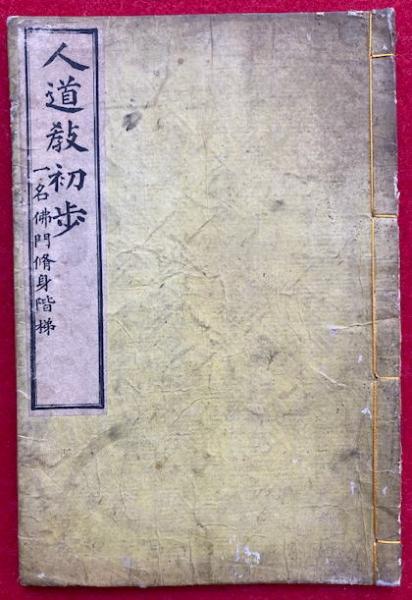 人道教初歩
一名佛門脩身階梯